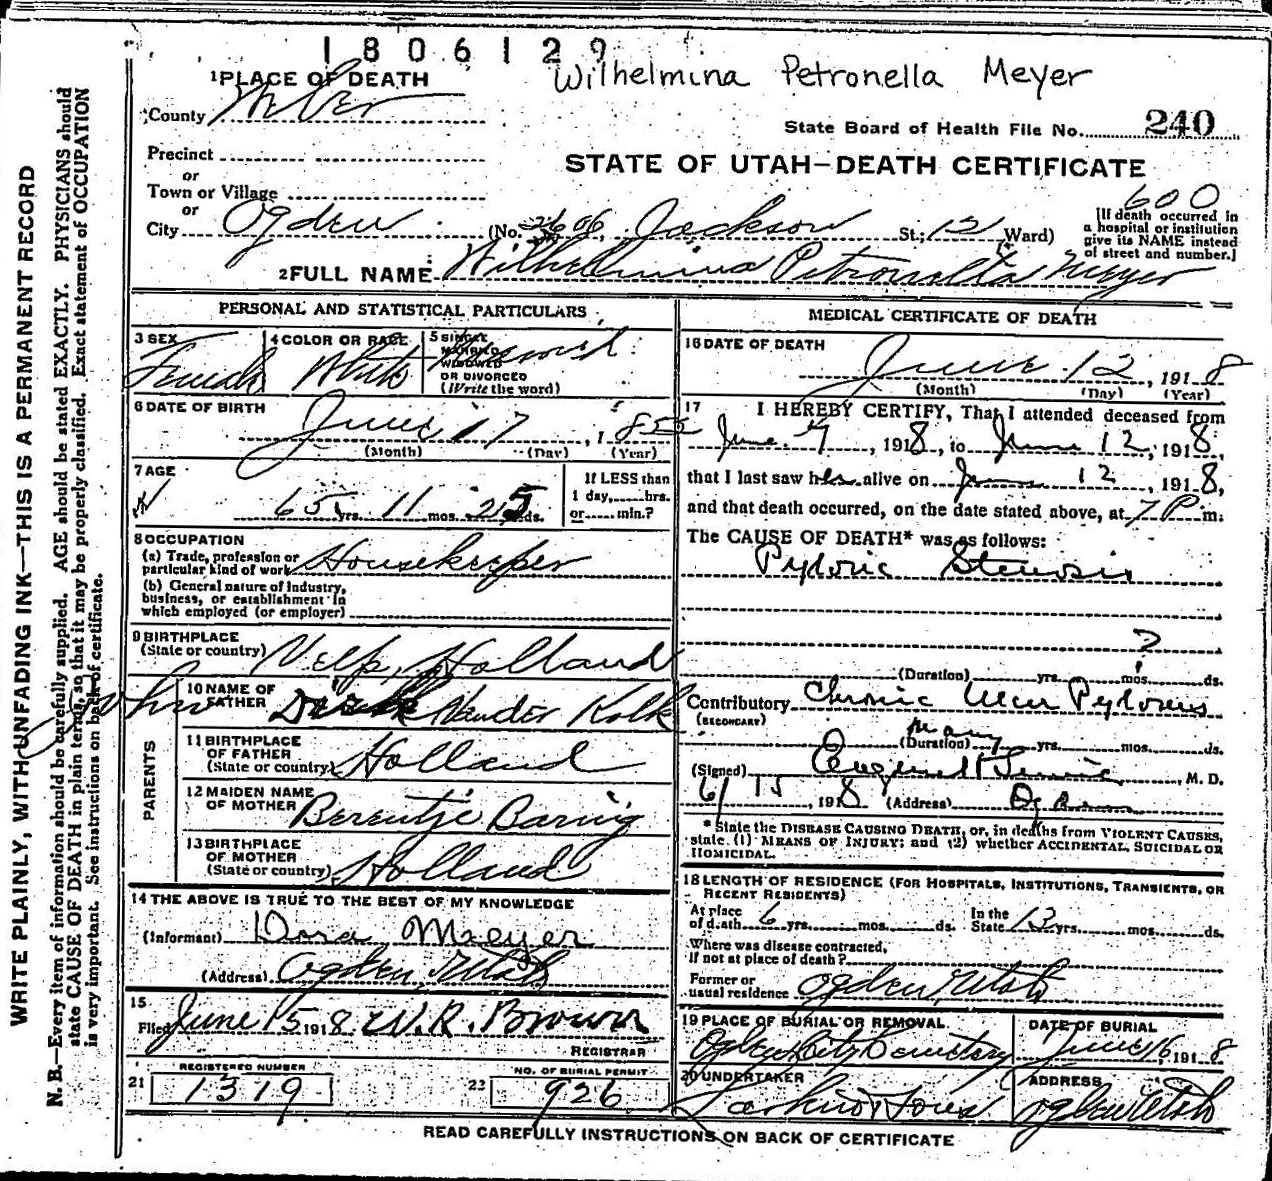 1806129
Wilhelmina Petronella Meyer
1 PLACE OF DEATH
County Weber
State Board of Health File No. 240
Precinct
or
Town or Village
or
STATE OF UTAH—DEATH CERTIFICATE
600
City Ogden (No. 2606, Jackson St.; 12 Ward)
[If death occurred in
a hospital or institution
give its NAME instead
of street and number.]
2 FULL NAME Wilhelmina Petronella Meyer
PERSONAL AND STATISTICAL PARTICULARS
3 SEX
Female
4 COLOR OR RACE
White
5 SINGLE
MARRIED
WIDOWED
OR DIVORCED
(Write the word)
6 DATE OF BIRTH
June 17, 185
(Month) (Day) (Year)
7 AGE
65 yrs. 11 mos. 25 ds.
If LESS than
1 day,......hrs.
or......min.?
8 OCCUPATION
(a) Trade, profession or
particular kind of work Housekeeper
(b) General nature of industry,
business, or establishment in
which employed (or employer)
9 BIRTHPLACE
(State or country) Velp, Holland
PARENTS
10 NAME OF
FATHER Dirk Vander Kolk
11 BIRTHPLACE
OF FATHER
(State or country) Holland
12 MAIDEN NAME
OF MOTHER Berentje Baring
13 BIRTHPLACE
OF MOTHER
(State or country) Holland
14 THE ABOVE IS TRUE TO THE BEST OF MY KNOWLEDGE
(Informant) Dora Meyer
(Address) Ogden, Utah
15
Filed June 15 1918 W.R. Brown
REGISTRAR
REGISTERED NUMBER
21 1319
NO. OF BURIAL PERMIT
22 926
MEDICAL CERTIFICATE OF DEATH
16 DATE OF DEATH
June 12, 1918
(Month) (Day) (Year)
17 I HEREBY CERTIFY, That I attended deceased from
June 7, 1918, to June 12, 1918,
that I last saw her alive on June 12, 1918,
and that death occurred, on the date stated above, at 7 P m.
The CAUSE OF DEATH* was as follows:
Pyloric Stenosis
?
(Duration) yrs. mos. ds.
Contributory Chronic Ulcer Pylorus
(SECONDARY)
many
(Duration) yrs. mos. ds.
(Signed) M. D.
6/15, 1918 (Address) Ogden
* State the DISEASE CAUSING DEATH, or, in deaths from VIOLENT CAUSES,
state (1) MEANS OF INJURY; and (2) whether ACCIDENTAL, SUICIDAL OR
HOMICIDAL.
18 LENGTH OF RESIDENCE (FOR HOSPITALS, INSTITUTIONS, TRANSIENTS, OR
RECENT RESIDENTS)
At place
of death 6 yrs. mos. ds.
In the
State 13 yrs. mos. ds.
Where was disease contracted,
if not at place of death?
Former or
usual residence Ogden, Utah
19 PLACE OF BURIAL OR REMOVAL
Ogden City Cemetery
DATE OF BURIAL
June 16, 1918
20 UNDERTAKER
Larkin & Sons
ADDRESS
Ogden Utah
READ CAREFULLY INSTRUCTIONS ON BACK OF CERTIFICATE
WRITE PLAINLY, WITH UNFADING INK—THIS IS A PERMANENT RECORD
N. B.—Every item of information should be carefully supplied. AGE should be stated EXACTLY. PHYSICIANS should
state CAUSE OF DEATH in plain terms, so that it may be properly classified. Exact statement of OCCUPATION
is very important. See instructions on back of certificate.